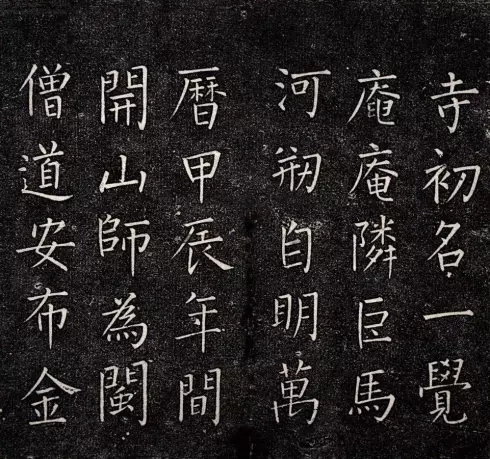 寺初名一覺
庵庵隣巨馬
河剏自明萬
暦甲辰年間
開山師為閩
僧道安布金